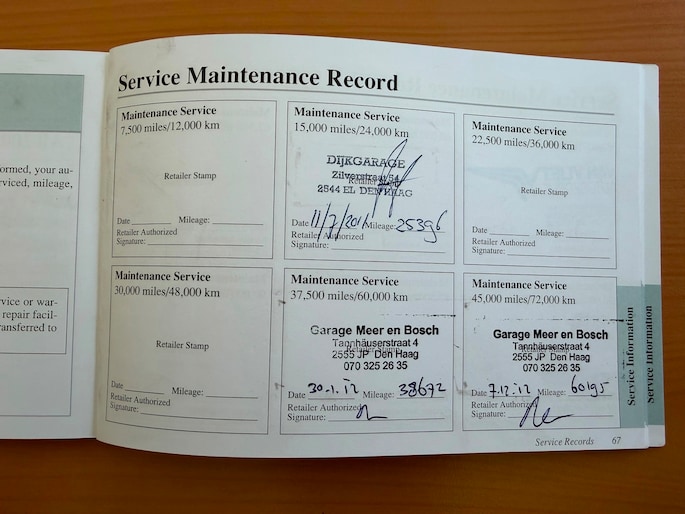 ormed, your au-
rviced, mileage,
rvice or war-
repair facil-
ransferred to
Service Maintenance Record
Maintenance Service
7,500 miles/12,000 km
Retailer Stamp
Date Mileage:
Retailer Authorized
Signature:
Maintenance Service
15,000 miles/24,000 km
DIJKGARAGE
Zilverstraat 54
Retailer Stamp
2544 EL DEN HAAG
Date 11/7/2011 Mileage: 25396
Retailer Authorized
Signature:
Maintenance Service
22,500 miles/36,000 km
Retailer Stamp
Date Mileage:
Retailer Authorized
Signature:
Maintenance Service
30,000 miles/48,000 km
Retailer Stamp
Date Mileage:
Retailer Authorized
Signature:
Maintenance Service
37,500 miles/60,000 km
Garage Meer en Bosch
Tannhäuserstraat 4
2555 JP Den Haag
070 325 26 35
Date 30.1.12 Mileage: 38672
Retailer Authorized
Signature:
Maintenance Service
45,000 miles/72,000 km
Garage Meer en Bosch
Tannhäuserstraat 4
2555 JP Den Haag
070 325 26 35
Date 7.12.12 Mileage: 60195
Retailer Authorized
Signature:
Service Information
Service Information
Service Records 67